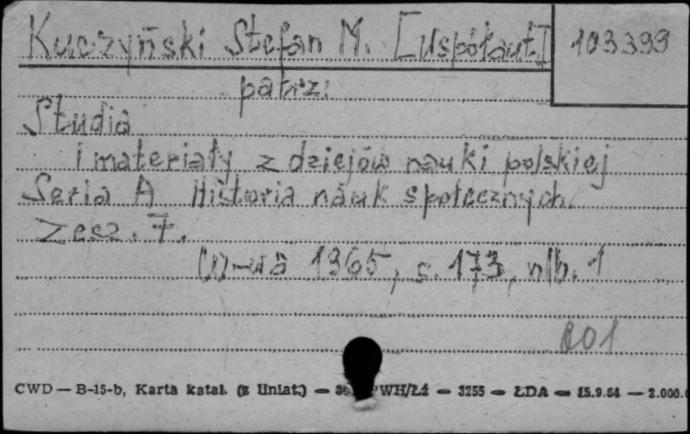 Kuczyński Stefan M. [Współaut.] 103399
patrz:
Studia
i materiały z dziejów nauki polskiej
Seria A Historia nauk społecznych.
Zesz. 7.
W-wa 1965, s. 173, nlb. 1
801
CWD — B-15-b, Karta katal. (z liniat.) — PWH/Łź — 3255 — ŁDA — 15.9.64 — 2.000.0